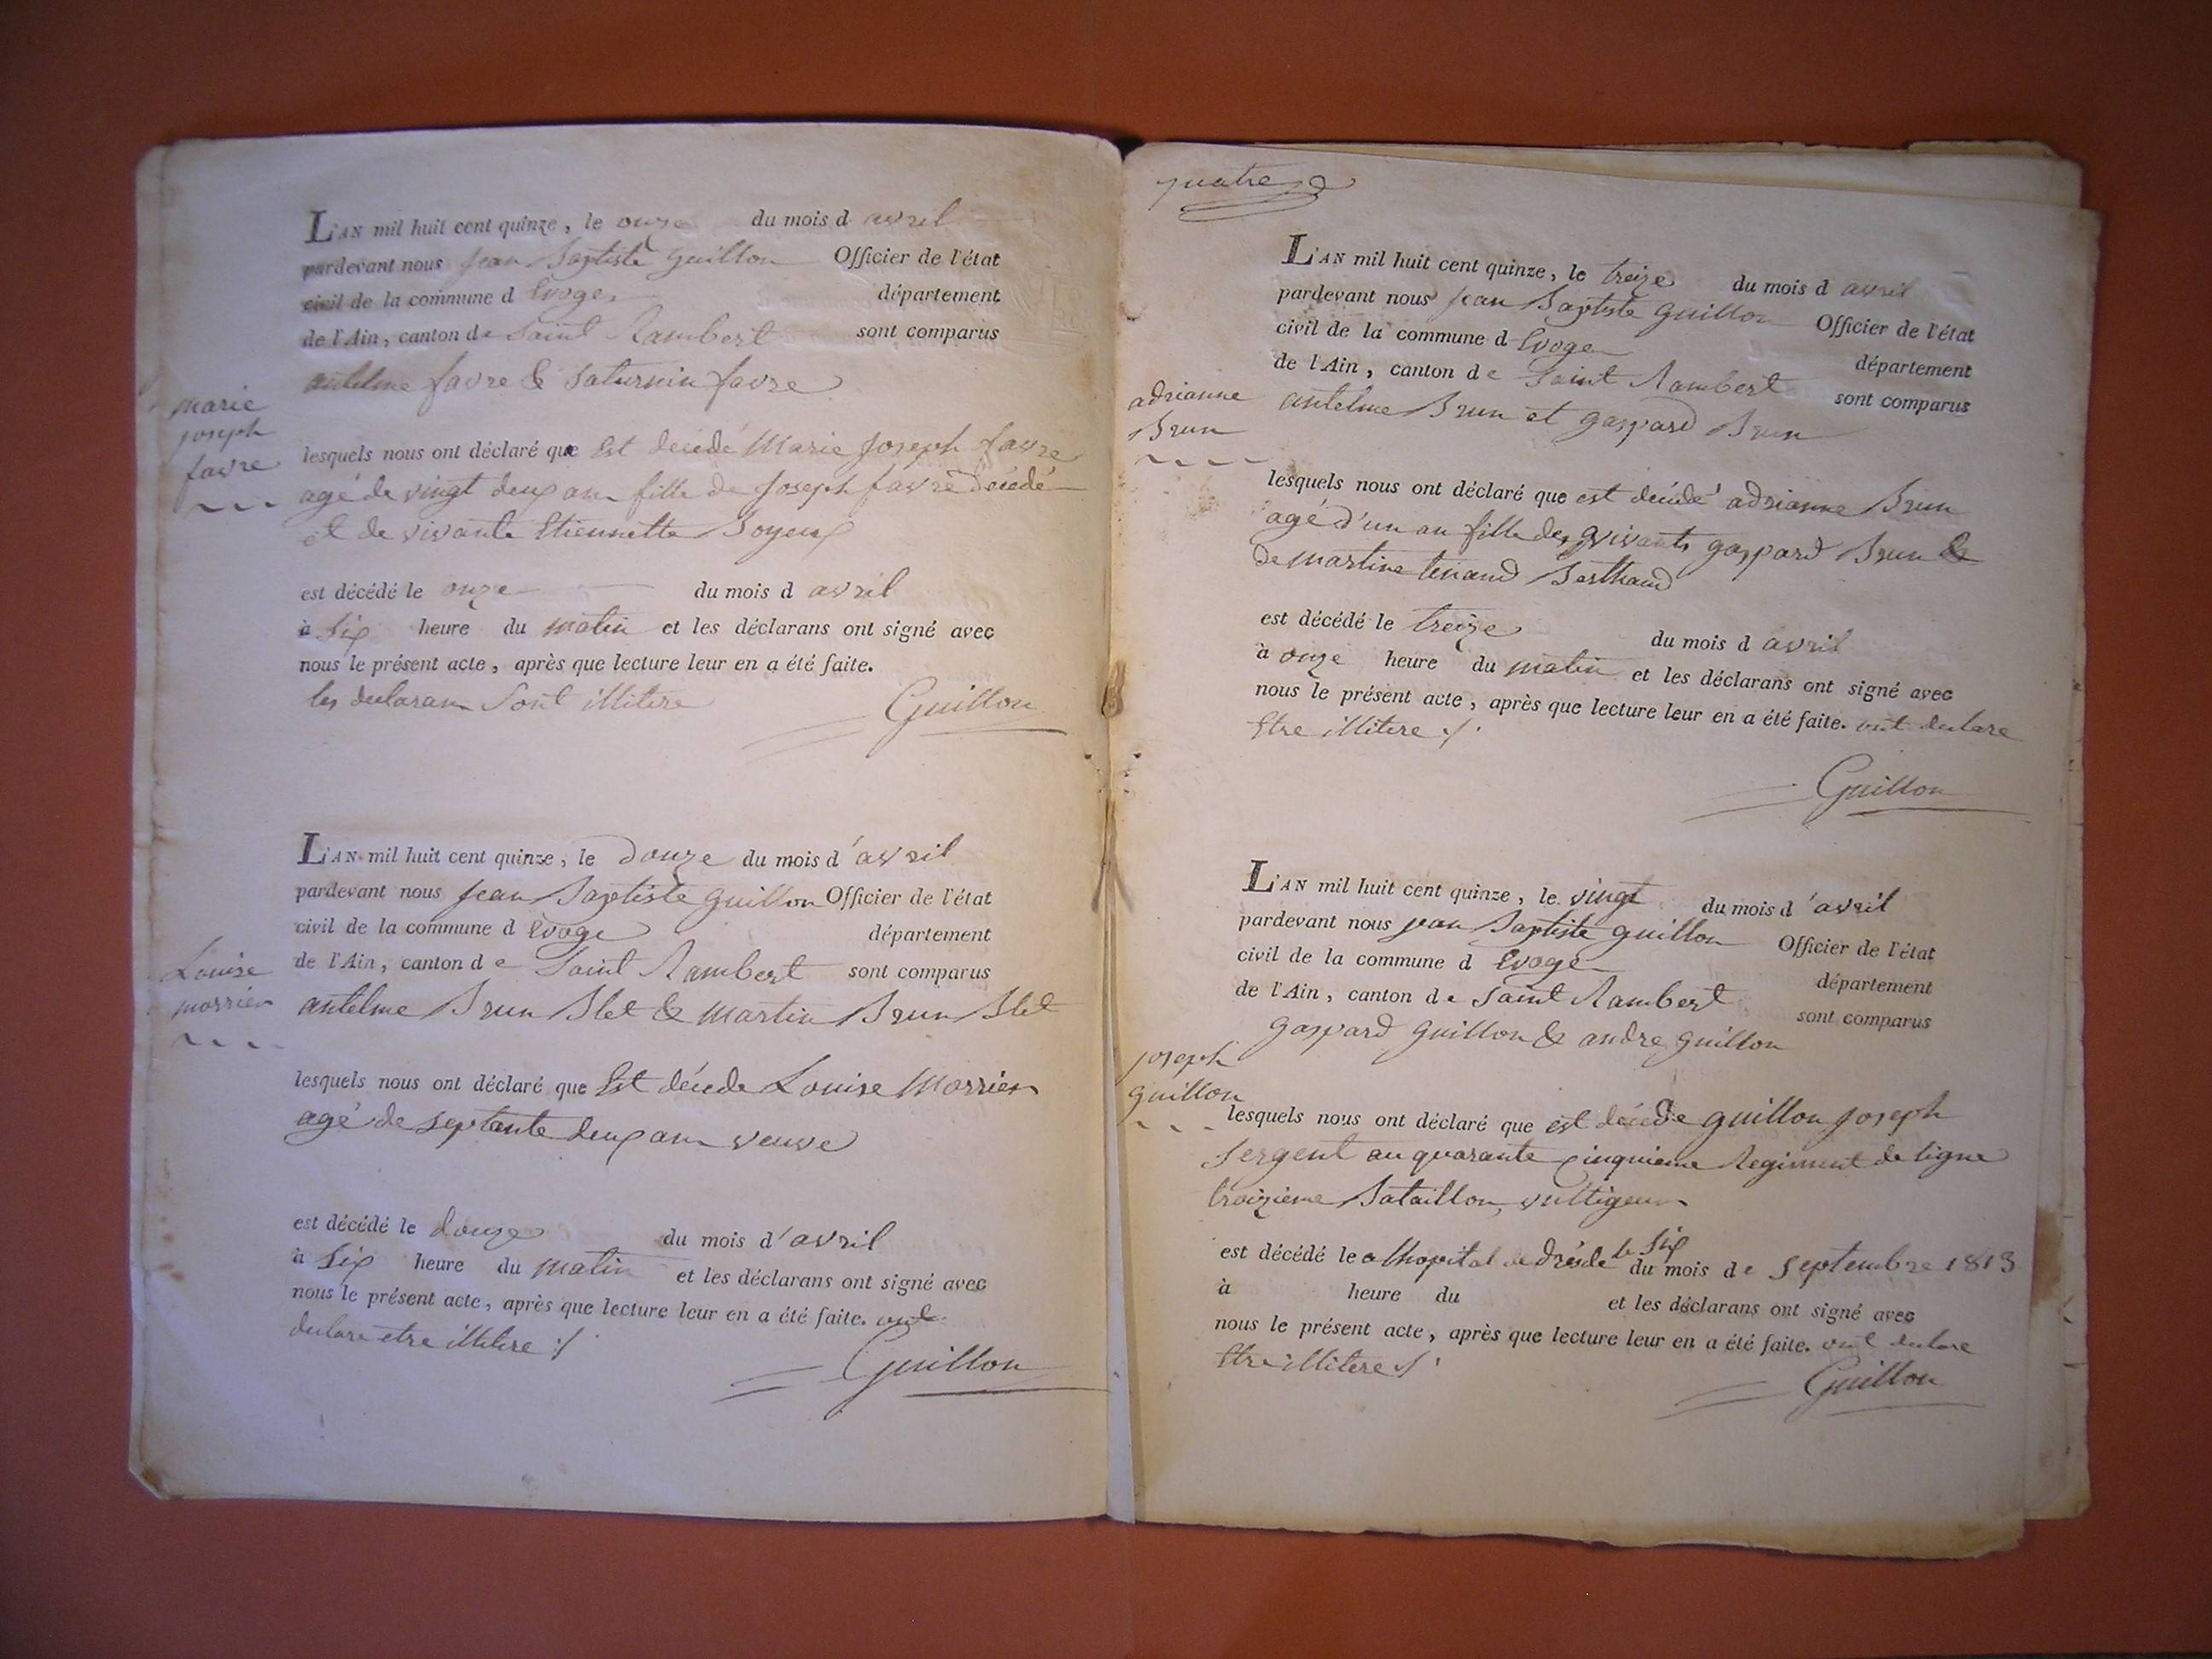 L'AN mil huit cent quinze, le onze du mois d avril
pardevant nous Jean Baptiste Guillon Officier de l'état
civil de la commune d Evoge département
de l'Ain, canton de Saint Rambert sont comparus
antelme favre & Saturnin favre
marie
joseph
favre
lesquels nous ont déclaré que Est décédé Marie Joseph favre
agé de vingt deux an fille de Joseph favre décédé
et de vivante Etiennette Boyeux
est décédé le onze du mois d avril
à Six heure du matin et les déclarans ont signé avec
nous le présent acte, après que lecture leur en a été faite.
les declaran Sont illitere
Guillon
L'AN mil huit cent quinze, le Douze du mois d'avril
pardevant nous Jean Baptiste Guillon Officier de l'état
civil de la commune d Evoge département
de l'Ain, canton de Saint Rambert sont comparus
antelme Brun Blet & Martin Brun Blet
Louise
morrier
lesquels nous ont déclaré que Est décede Louise Morrier
agé de septante deux an veuve
est décédé le douze du mois d'avril
à Six heure du matin et les déclarans ont signé avec
nous le présent acte, après que lecture leur en a été faite. ont
declare etre illitere
Guillon
quatre
L'AN mil huit cent quinze, le treize du mois d avril
pardevant nous Jean Baptiste Guillon Officier de l'état
civil de la commune d Evoge département
de l'Ain, canton de Saint Rambert sont comparus
adrianne
Brun
antelme Brun et gaspard Brun
lesquels nous ont déclaré que est décédé adrianne Brun
agé d'un an fille des vivants gaspard Brun &
de martine tenand Berthaud
est décédé le treize du mois d avril
à onze heure du matin et les déclarans ont signé avec
nous le présent acte, après que lecture leur en a été faite. ont declare
Etre illitere
Guillon
L'AN mil huit cent quinze, le vingt du mois d'avril
pardevant nous jean Baptiste guillon Officier de l'état
civil de la commune d Evoge département
de l'Ain, canton de Saint Rambert sont comparus
gaspard guillon & andre guillon
joseph
guillon
lesquels nous ont déclaré que est décéde guillon joseph
Sergent au quarante cinquieme Regiment de ligne
troizieme Bataillon, vultigeur
est décédé le a lhopital de drésde le Six du mois de Septembre 1813
à heure du et les déclarans ont signé avec
nous le présent acte, après que lecture leur en a été faite. ont declare
Etre illitere
Guillon